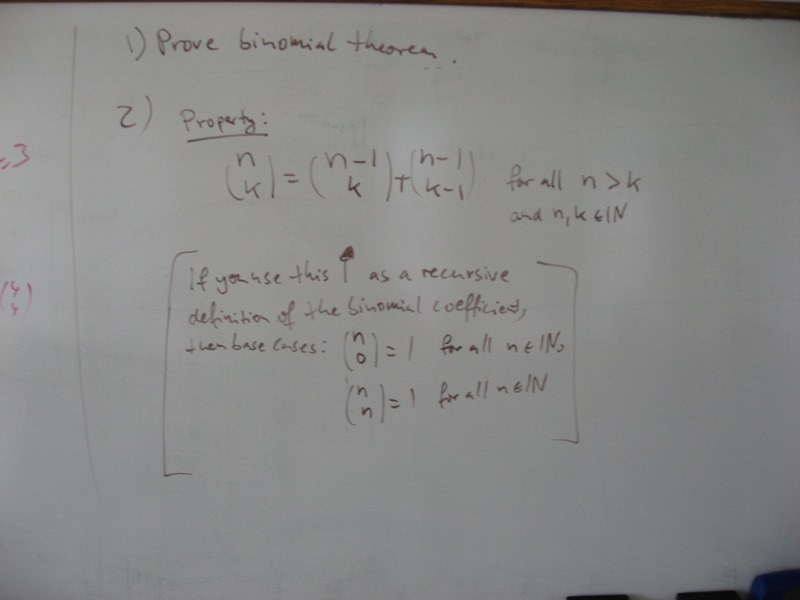 =3
(4 4)
1) Prove binomial theorem.
2) Property:
(n k) = (n-1 k) + (n-1 k-1) for all n > k
and n, k ∈ ℕ
If you use this ↑ as a recursive
definition of the binomial coefficient,
then base cases: (n 0) = 1 for all n ∈ ℕ₀
(n n) = 1 for all n ∈ ℕ